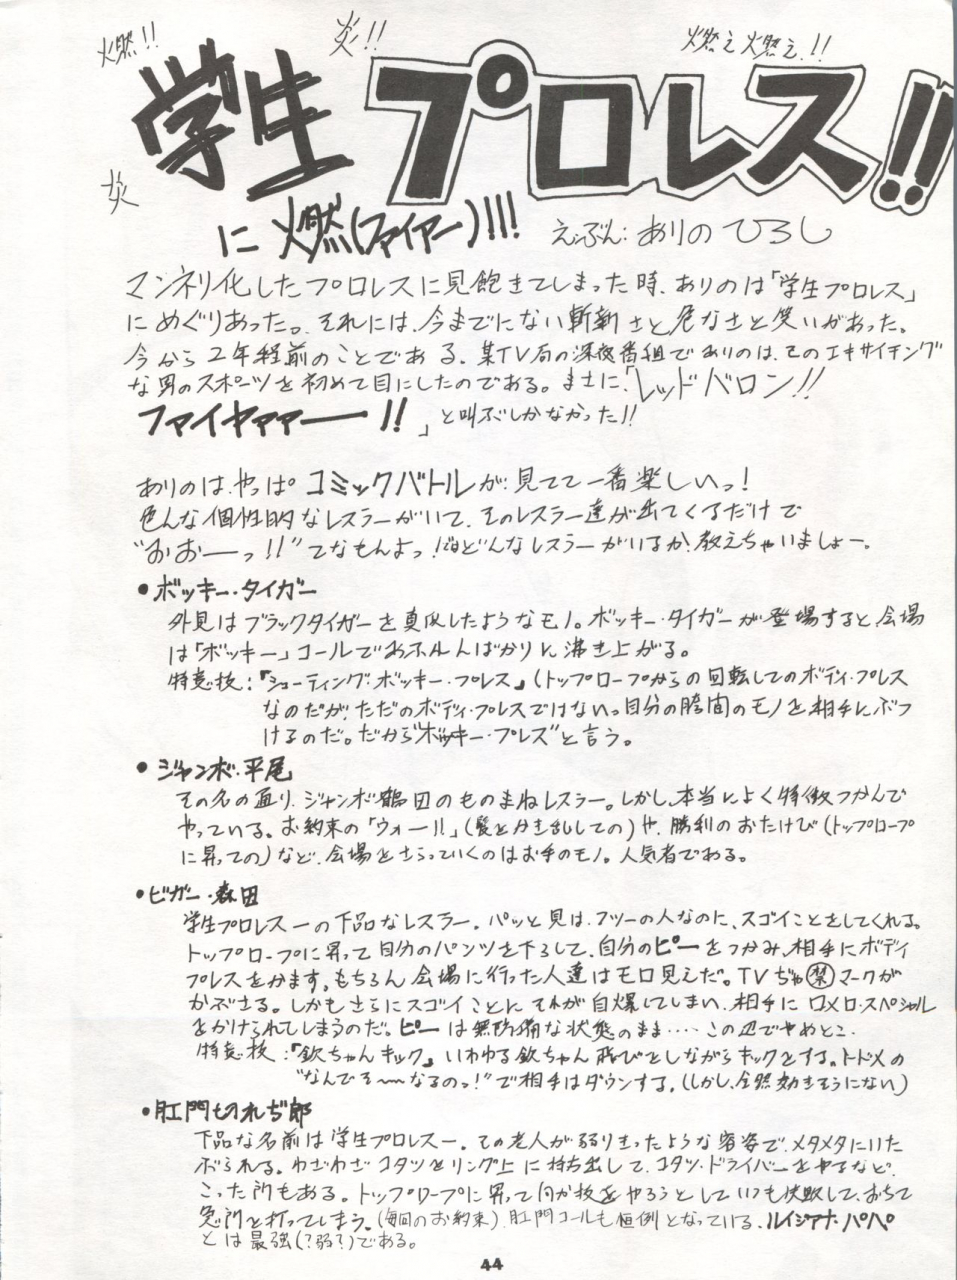 燃!!
炎!!
燃え燃え!!
炎
学生プロレス!!
に燃(ファイアー)!!!
えーぶん:ありのひろし
マンネリ化したプロレスに見飽きてしまった時、ありのは「学生プロレス」
にめぐりあった。それには、今までにない斬新さと危なさと笑いがあった。
今から2年程前のことである。某TV局の深夜番組でありのは、そのエキサイチング
な男のスポーツを初めて目にしたのである。まさに「レッドバロン!!
ファイヤァァー!!」と叫ぶしかなかった!!
ありのは、やっぱ。コミックバトルが見てて一番楽しいっ!
色んな個性的なレスラーがいて、そのレスラー達が出てくるだけで
“おおーっ!!”てなもんよっ!ではどんなレスラーがいるか、教えちゃいましょー。
•ボッキー・タイガー
外見はブラックタイガーを真似したようなモノ。ボッキー・タイガーが登場すると、会場
は「ボッキー」コールであふれんばかりに沸き上がる。
特意技:『シューティング・ボッキー・プレス』(トップロープからの回転してのボディ・プレス
なのだが、ただのボディ・プレスではないっ自分の股間のモノを相手にぶつ
けるのだ。だから“ボッキー・プレス”と言う。
•ジャンボ・平尾
その名の通り、ジャンボ鶴田のものまねレスラー。しかし、本当によく特徴つかんで
やっている。お約束の「ウォー!!」(髪をかき乱しての)や、勝利のおたけび(トップロープ
に昇っての)など、会場をさらっていくのはお手のモノ。人気者である。
•ビガー・森田
学生プロレス一の下品なレスラー。パッと見は、フツーの人なのに、スゴイことをしてくれる。
トップロープに昇って自分のパンツを下ろして、自分のピーをつかみ、相手にボディ
プレスをかます。もちろん会場に行った人達はモロ見えだ。TVぢゃ㊙マークが
かぶさる。しかもさらにスゴイことに、それが自爆してしまい、相手にロメロ・スペシャル
をかけられてしまうのだ。ピーは無防備な状態のまま‥‥この辺でやめとこ。
特意技:『欽ちゃんキック』いわゆる欽ちゃん飛びをしながらキックをする。トドメの
“なんでそ〜なるのっ!”で相手はダウンする。(しかし、全然効きそうにない)
•肛門切れぢ郎
下品な名前は学生プロレス一。その老人が弱りきったような容姿で、メタメタにいた
ぶられる。わざわざコタツをリング上に持ち出して、コタツ・ドライバーをやるなど、
こった所もある。トップロープに昇って何か技をやろうとしていつも失敗して、おちて
急所を打ってしまう。(毎回のお約束)肛門コールも恒例となっている。ルイジアナ・パパ
とは最強(?弱?)である。
44